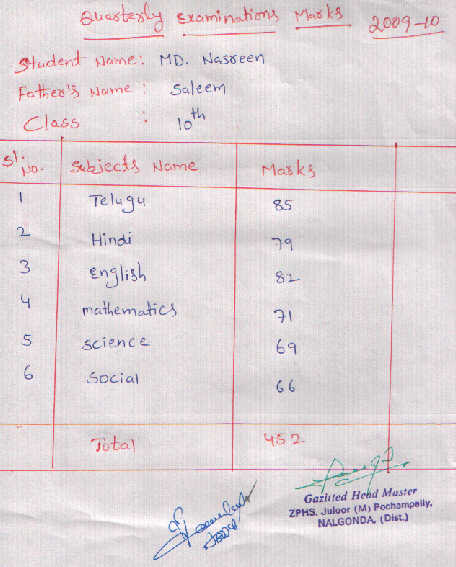 Quarterly Examinations Marks 2009-10
Student Name: MD. Nasreen
Father's Name : Saleem
Class : 10th
Sl. No. Subjects Name Marks
1 Telugu 85
2 Hindi 79
3 English 82
4 mathematics 71
5 science 69
6 Social 66
Total 452
Gazitted Head Master
ZPHS, Juloor (M) Pochampally,
NALGONDA, (Dist.)